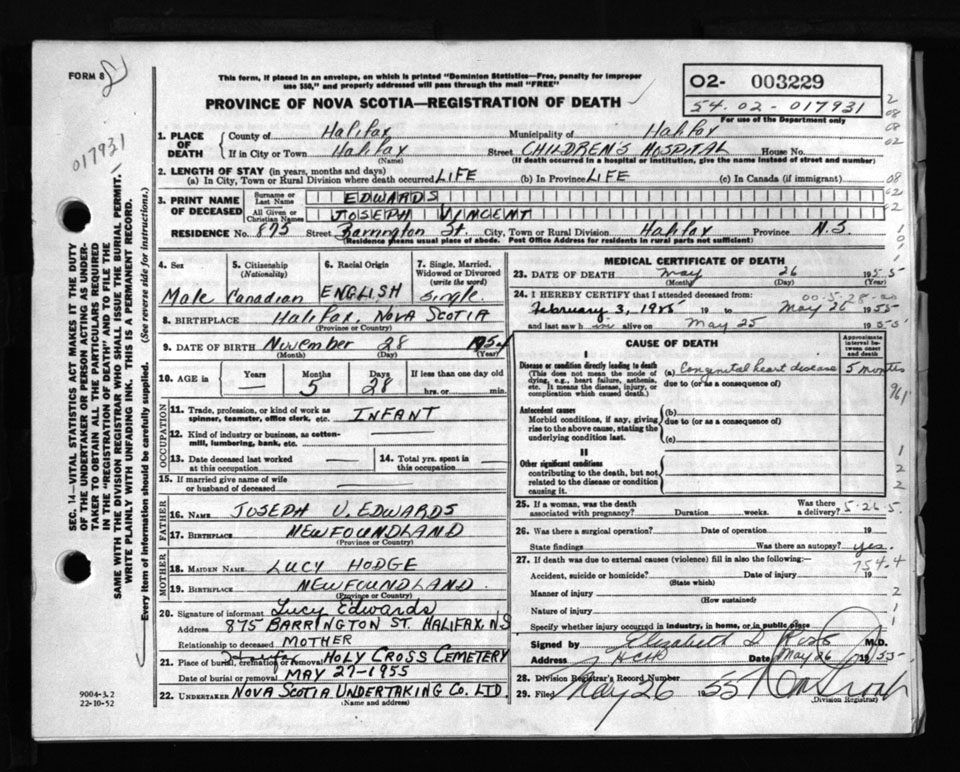 FORM 8
This form, if placed in an envelope, on which is printed "Dominion Statistics—Free, penalty for improper
use $50," and properly addressed will pass through the mail "FREE"
PROVINCE OF NOVA SCOTIA—REGISTRATION OF DEATH
02- 003229
54.02-017931
For use of the Department only
017931
1. PLACE OF DEATH
County of Halifax Municipality of Halifax
If in City or Town Halifax Street CHILDREN'S HOSPITAL House No.
(Name) (If death occurred in a hospital or institution, give the name instead of street and number)
2. LENGTH OF STAY (in years, months and days)
(a) In City, Town or Rural Division where death occurred LIFE (b) In Province LIFE (c) In Canada (if immigrant)
3. PRINT NAME OF DECEASED
Surname or Last Name EDWARDS
All Given or Christian Names JOSEPH VINCENT
RESIDENCE No. 875 Street Barrington St. City, Town or Rural Division Halifax Province N.S.
(Residence means usual place of abode. Post Office Address for residents in rural parts not sufficient)
4. Sex Male
5. Citizenship (Nationality) Canadian
6. Racial Origin ENGLISH
7. Single, Married, Widowed or Divorced (write the word) Single.
8. BIRTHPLACE Halifax, NOVA SCOTIA
(Province or Country)
9. DATE OF BIRTH November 28 1954
(Month) (Day) (Year)
10. AGE in Years — Months 5 Days 28 If less than one day old
hrs. or min.
OCCUPATION
11. Trade, profession, or kind of work as spinner, teamster, office clerk, etc. INFANT
12. Kind of industry or business, as cotton-mill, lumbering, bank, etc. —
13. Date deceased last worked at this occupation —
14. Total yrs. spent in this occupation —
15. If married give name of wife or husband of deceased —
FATHER
16. NAME JOSEPH V. EDWARDS
17. BIRTHPLACE NEWFOUNDLAND
(Province or Country)
MOTHER
18. MAIDEN NAME LUCY HODGE
19. BIRTHPLACE NEWFOUNDLAND.
(Province or Country)
20. Signature of informant Lucy Edwards
Address 875 BARRINGTON ST. HALIFAX, NS
Relationship to deceased MOTHER
21. Place of burial, cremation or removal HOLY CROSS CEMETERY
Date of burial or removal MAY 27-1955
22. UNDERTAKER NOVA SCOTIA UNDERTAKING CO. LTD.
(Name and address)
MEDICAL CERTIFICATE OF DEATH
23. DATE OF DEATH May 26 1955
(Month) (Day)
00-5-28-00
24. I HEREBY CERTIFY that I attended deceased from:
February 3, 1955 19 to May 26 1955
and last saw h im alive on May 25 1955
CAUSE OF DEATH
Approximate interval between onset and death
I
Disease or condition directly leading to death
(This does not mean the mode of dying, e.g., heart failure, asthenia, etc. It means the disease, injury, or complication which caused death.)
(a) Congenital heart disease 5 months
due to (or as a consequence of)
Antecedent causes
Morbid conditions, if any, giving rise to the above cause, stating the underlying condition last.
(b)
due to (or as a consequence of)
(c)
II
Other significant conditions
contributing to the death, but not related to the disease or condition causing it.
25. If a woman, was the death associated with pregnancy? Duration weeks. Was there a delivery?
5-26-5
26. Was there a surgical operation? Date of operation 19
State findings Was there an autopsy? yes.
27. If death was due to external causes (violence) fill in also the following:—
754.4
Accident, suicide or homicide? Date of injury 19
(State which)
Manner of injury
(How sustained)
Nature of injury
Specify whether injury occurred in industry, in home, or in public place
Signed by Elizabeth D. Ross M.D.
Address HCH Date May 26 1955
28. Division Registrar's Record Number
29. Filed May 26 1955
(Division Registrar)
SEC. 14—VITAL STATISTICS ACT MAKES IT THE DUTY
OF THE UNDERTAKER OR PERSON ACTING AS UNDER-
TAKER TO OBTAIN ALL THE PARTICULARS REQUIRED
IN THE "REGISTRATION OF DEATH" AND TO FILE THE
SAME WITH THE DIVISION REGISTRAR WHO SHALL ISSUE THE BURIAL PERMIT.
WRITE PLAINLY WITH UNFADING INK. THIS IS A PERMANENT RECORD.
Every item of information should be carefully supplied. (See reverse side for instructions.)
9004-3.2
22-10-52